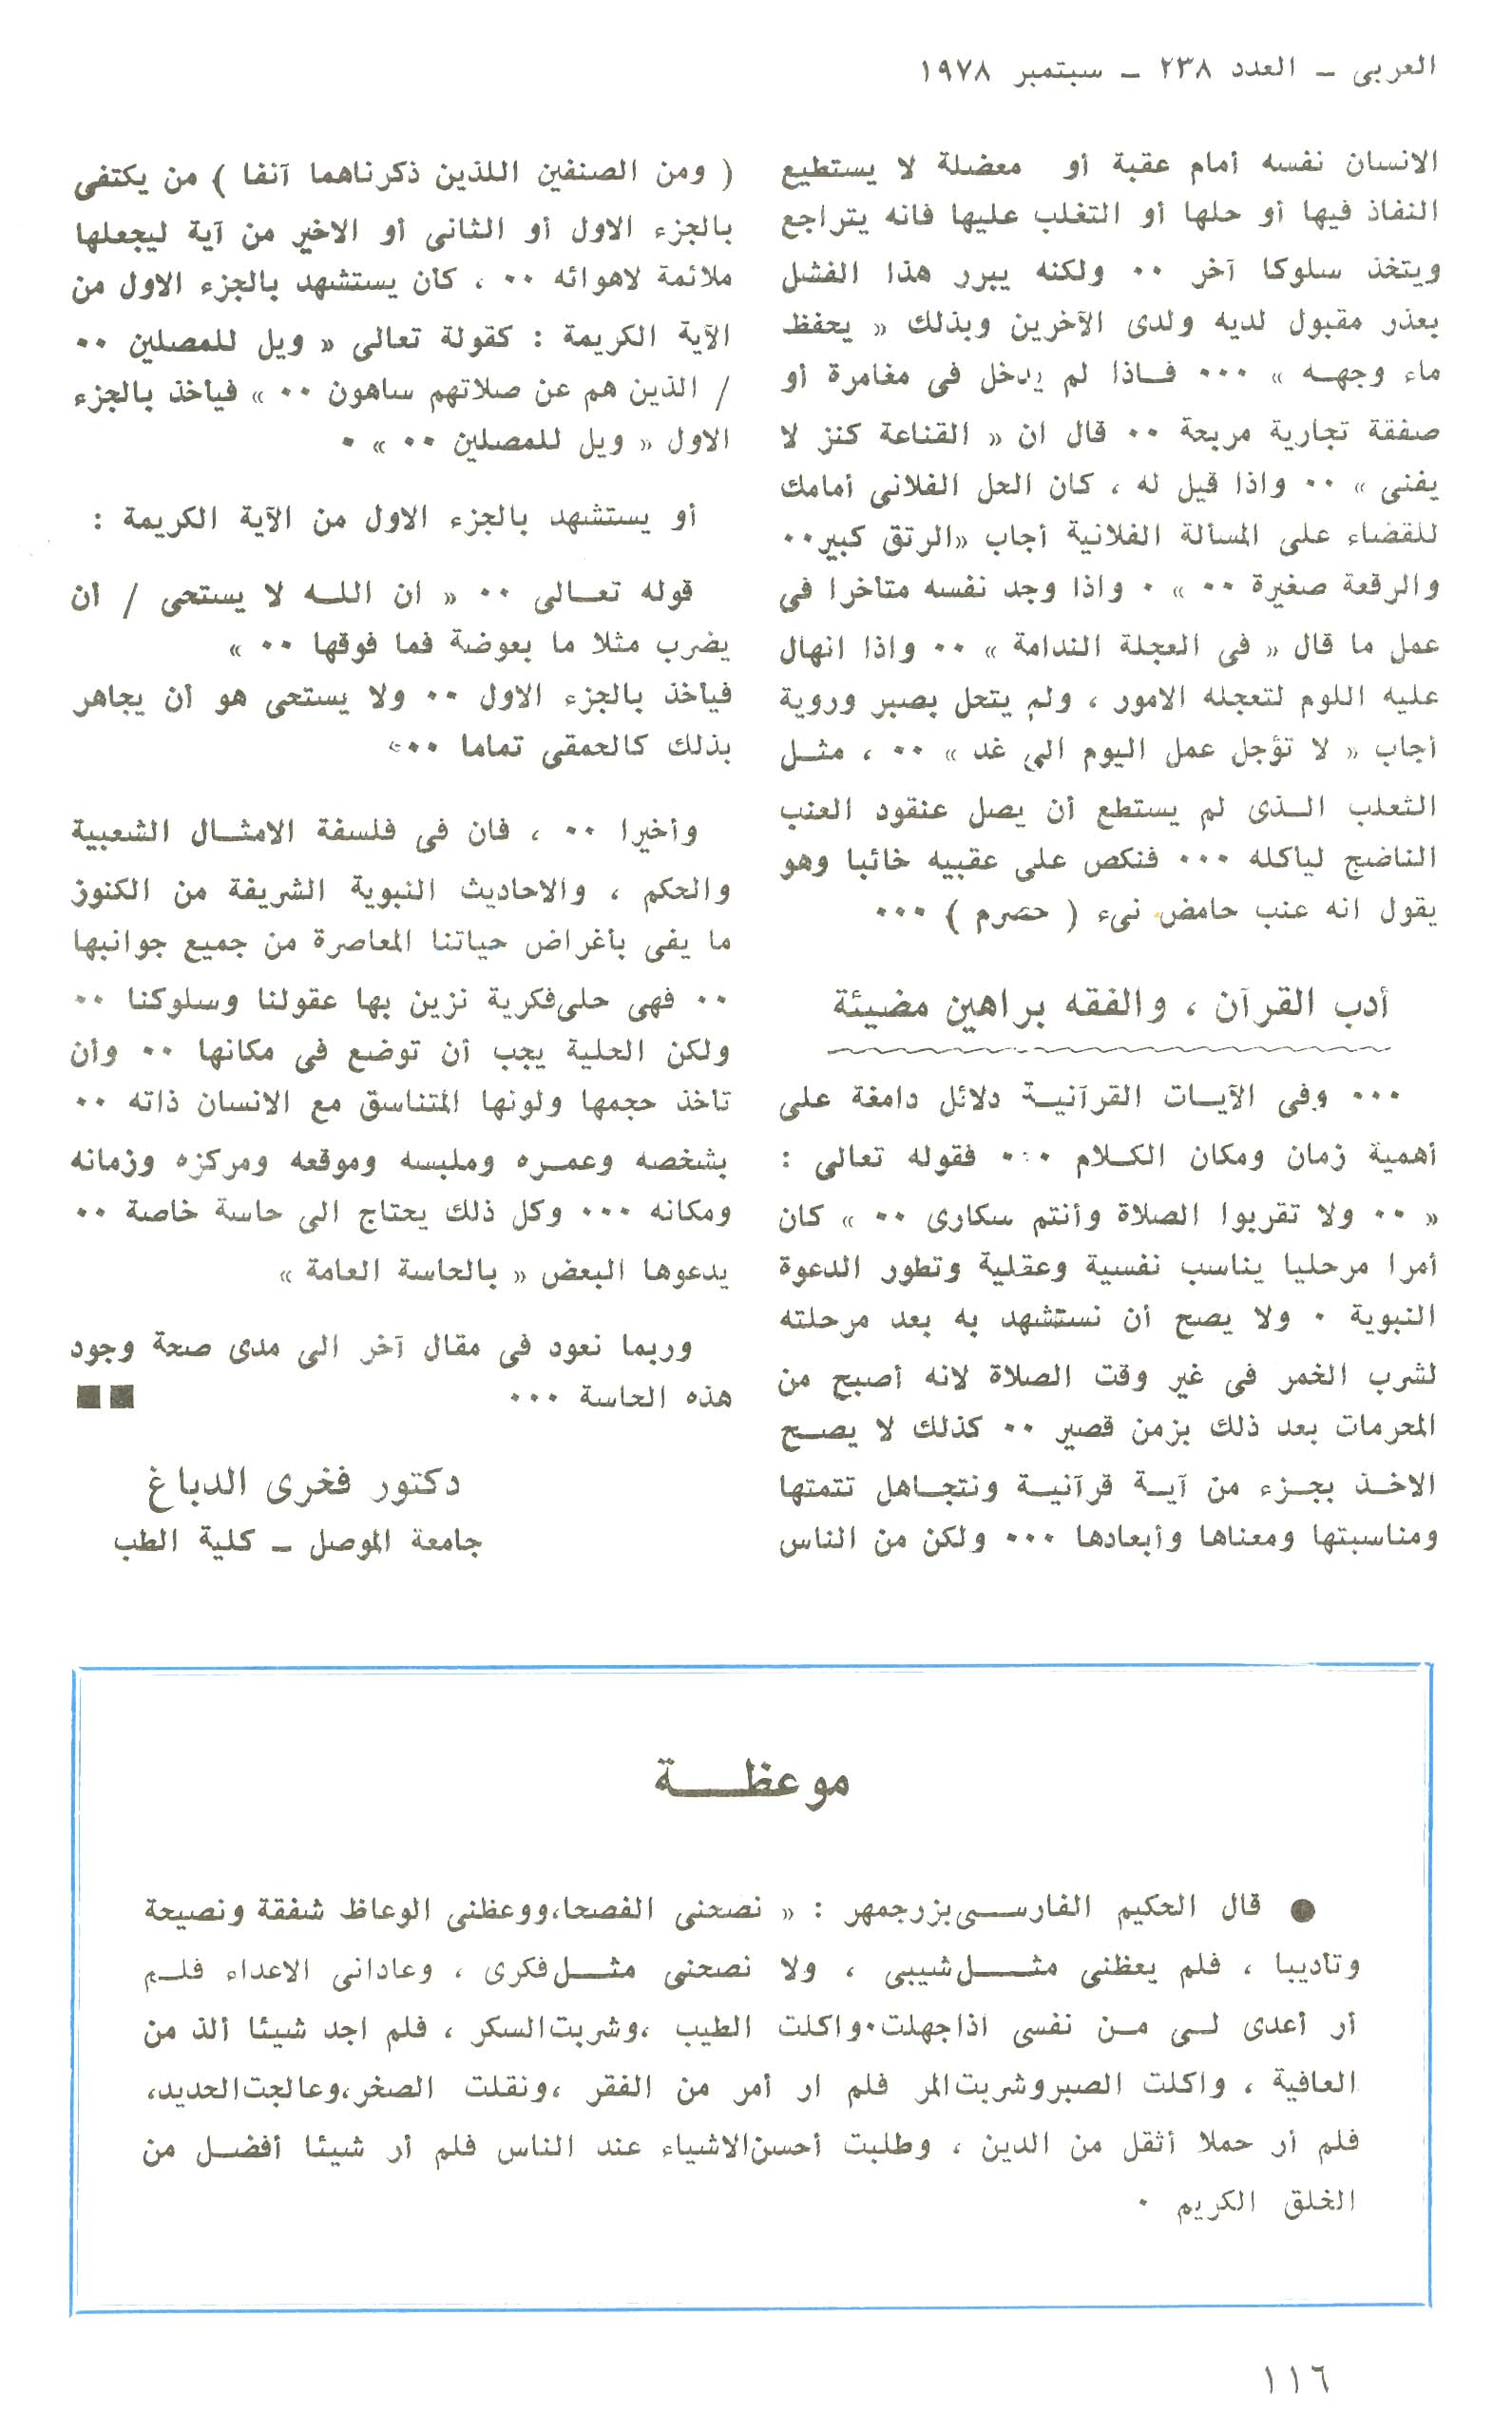 العربى ــ العدد ٢٣٨ ــ سبتمبر ١٩٧٨
الانسان نفسه أمام عقبة أو معضلة لا يستطيع
النفاذ فيها أو حلها أو التغلب عليها فانه يتراجع
ويتخذ سلوكا آخر ٠٠ ولكنه يبرر هذا الفشل
بعذر مقبول لديه ولدى الآخرين وبذلك « يحفظ
ماء وجهـه » ٠٠٠ فـاذا لم يدخل فى مغامرة أو
صفقة تجارية مربحة ٠٠ قال ان « القناعة كنز لا
يفنى » ٠٠ واذا قيل له ، كان الحل الفلانى أمامك
للقضاء على المسألة الفلانية أجاب «الرتق كبير٠٠
والرقعة صغيرة ٠٠ » ٠ واذا وجد نفسه متأخرا فى
عمل ما قال « فى العجلة الندامة » ٠٠ واذا انهال
عليه اللوم لتعجله الامور ، ولم يتحل بصبر وروية
أجاب « لا تؤجل عمل اليوم الى غد » ٠٠ ، مثـل
الثعلب الـذى لم يستطع أن يصل عنقود العنب
الناضج ليأكله ٠٠٠ فنكص على عقبيه خائبا وهو
يقول انه عنب حامض نىء ( حصرم ) ٠٠٠
أدب القرآن ، والفقه براهين مضيئة
٠٠٠ وفى الآيـات القرآنيـة دلائل دامغة على
أهمية زمان ومكان الكـلام ٠٠٠ فقوله تعالى :
« ٠٠ ولا تقربوا الصلاة وأنتم سكارى ٠٠ » كان
أمرا مرحليا يناسب نفسية وعقلية وتطور الدعوة
النبوية ٠ ولا يصح أن نستشهد به بعد مرحلته
لشرب الخمر فى غير وقت الصلاة لانه أصبح من
المحرمات بعد ذلك بزمن قصير ٠٠ كذلك لا يصـح
الاخـذ بجـزء من آيـة قرآنيـة ونتجـاهل تتمتها
ومناسبتها ومعناها وأبعادها ٠٠٠ ولكن من الناس
( ومن الصنفين اللذين ذكرناهما آنفا ) من يكتفى
بالجزء الاول أو الثانى أو الاخير من آية ليجعلها
ملائمة لاهوائه ٠٠ ، كأن يستشهد بالجزء الاول من
الآية الكريمة : كقولة تعالى « ويل للمصلين ٠٠
/ الذين هم عن صلاتهم ساهون ٠٠ » فيأخذ بالجزء
الاول « ويل للمصلين ٠٠ » ٠
أو يستشهد بالجزء الاول من الآية الكريمة :
قوله تعـالى ٠٠ « ان اللـه لا يستحى / أن
يضرب مثلا ما بعوضة فما فوقها ٠٠ »
فيأخذ بالجزء الاول ٠٠ ولا يستحى هو أن يجاهر
بذلك كالحمقى تماما ٠٠٠
وأخيرا ٠٠ ، فان فى فلسفة الامثـال الشعبية
والحكم ، والاحاديث النبوية الشريفة من الكنوز
ما يفى بأغراض حياتنا المعاصرة من جميع جوانبها
٠٠ فهى حلى فكرية نزين بها عقولنا وسلوكنا ٠٠
ولكن الحلية يجب أن توضع فى مكانها ٠٠ وأن
تأخذ حجمها ولونها المتناسق مع الانسان ذاته ٠٠
بشخصه وعمـره وملبسه وموقعه ومركزه وزمانه
ومكانه ٠٠٠ وكل ذلك يحتاج الى حاسة خاصة ٠٠
يدعوها البعض « بالحاسة العامة »
وربما نعود فى مقال آخر الى مدى صحة وجود
هذه الحاسة ٠٠٠ ■■
دكتور فخرى الدباغ
جامعة الموصل ــ كلية الطب
موعظـــة
● قال الحكيم الفارسـى بزرجمهر : « نصحنى الفصحا،ووعظنى الوعاظ شفقة ونصيحة
وتأديبا ، فلم يعظنى مثـــل شيبى ، ولا نصحنى مثـل فكرى ، وعادانى الاعداء فلـم
أر أعدى لـى مـن نفسى اذا جهلت٠واكلت الطيب ،وشربت السكر ، فلم اجد شيئا ألذ من
العافية ، واكلت الصبر وشربت المر فلم ار أمر من الفقر ،ونقلت الصخر،وعالجت الحديد،
فلم أر حملا أثقل من الدين ، وطلبت أحسن الاشياء عند الناس فلم أر شيئا أفضـل من
الخلق الكريم ٠
١١٦